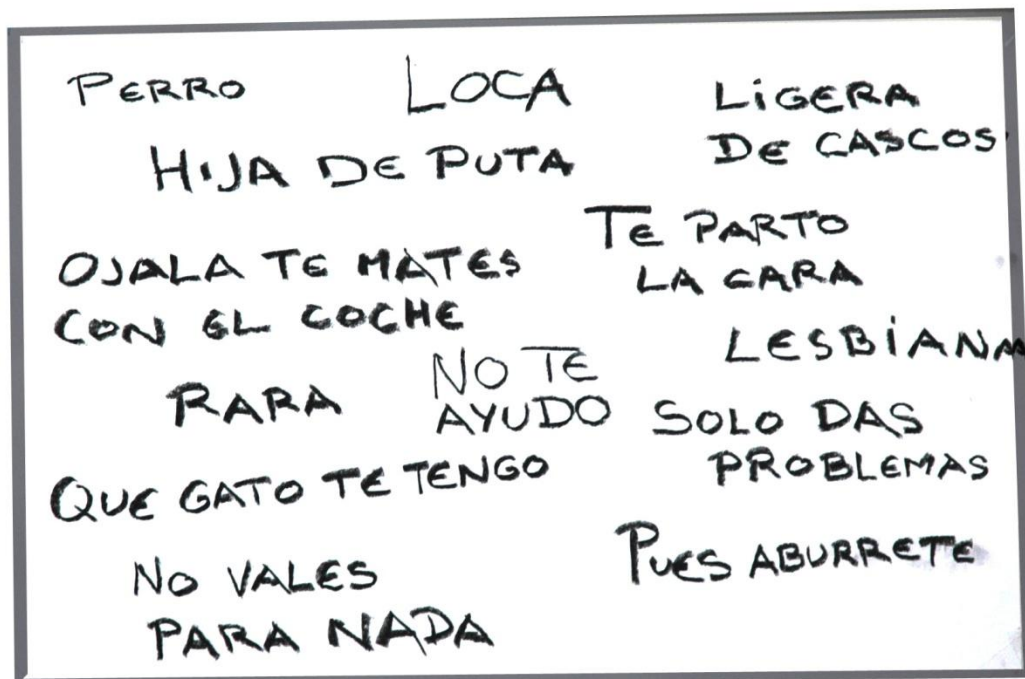 PERRO
LOCA
LiGERA
DE CASCOS
HIJA DE PUTA
TE PARTO
LA CARA
OJALA TE MATES
CON EL COCHE
LESBiANA
NO TE
AYUDO
RARA
SOLO DAS
PROBLEMAS
QUE GATO TE TENGO
PUES ABURRETE
NO VALES
PARA NADA